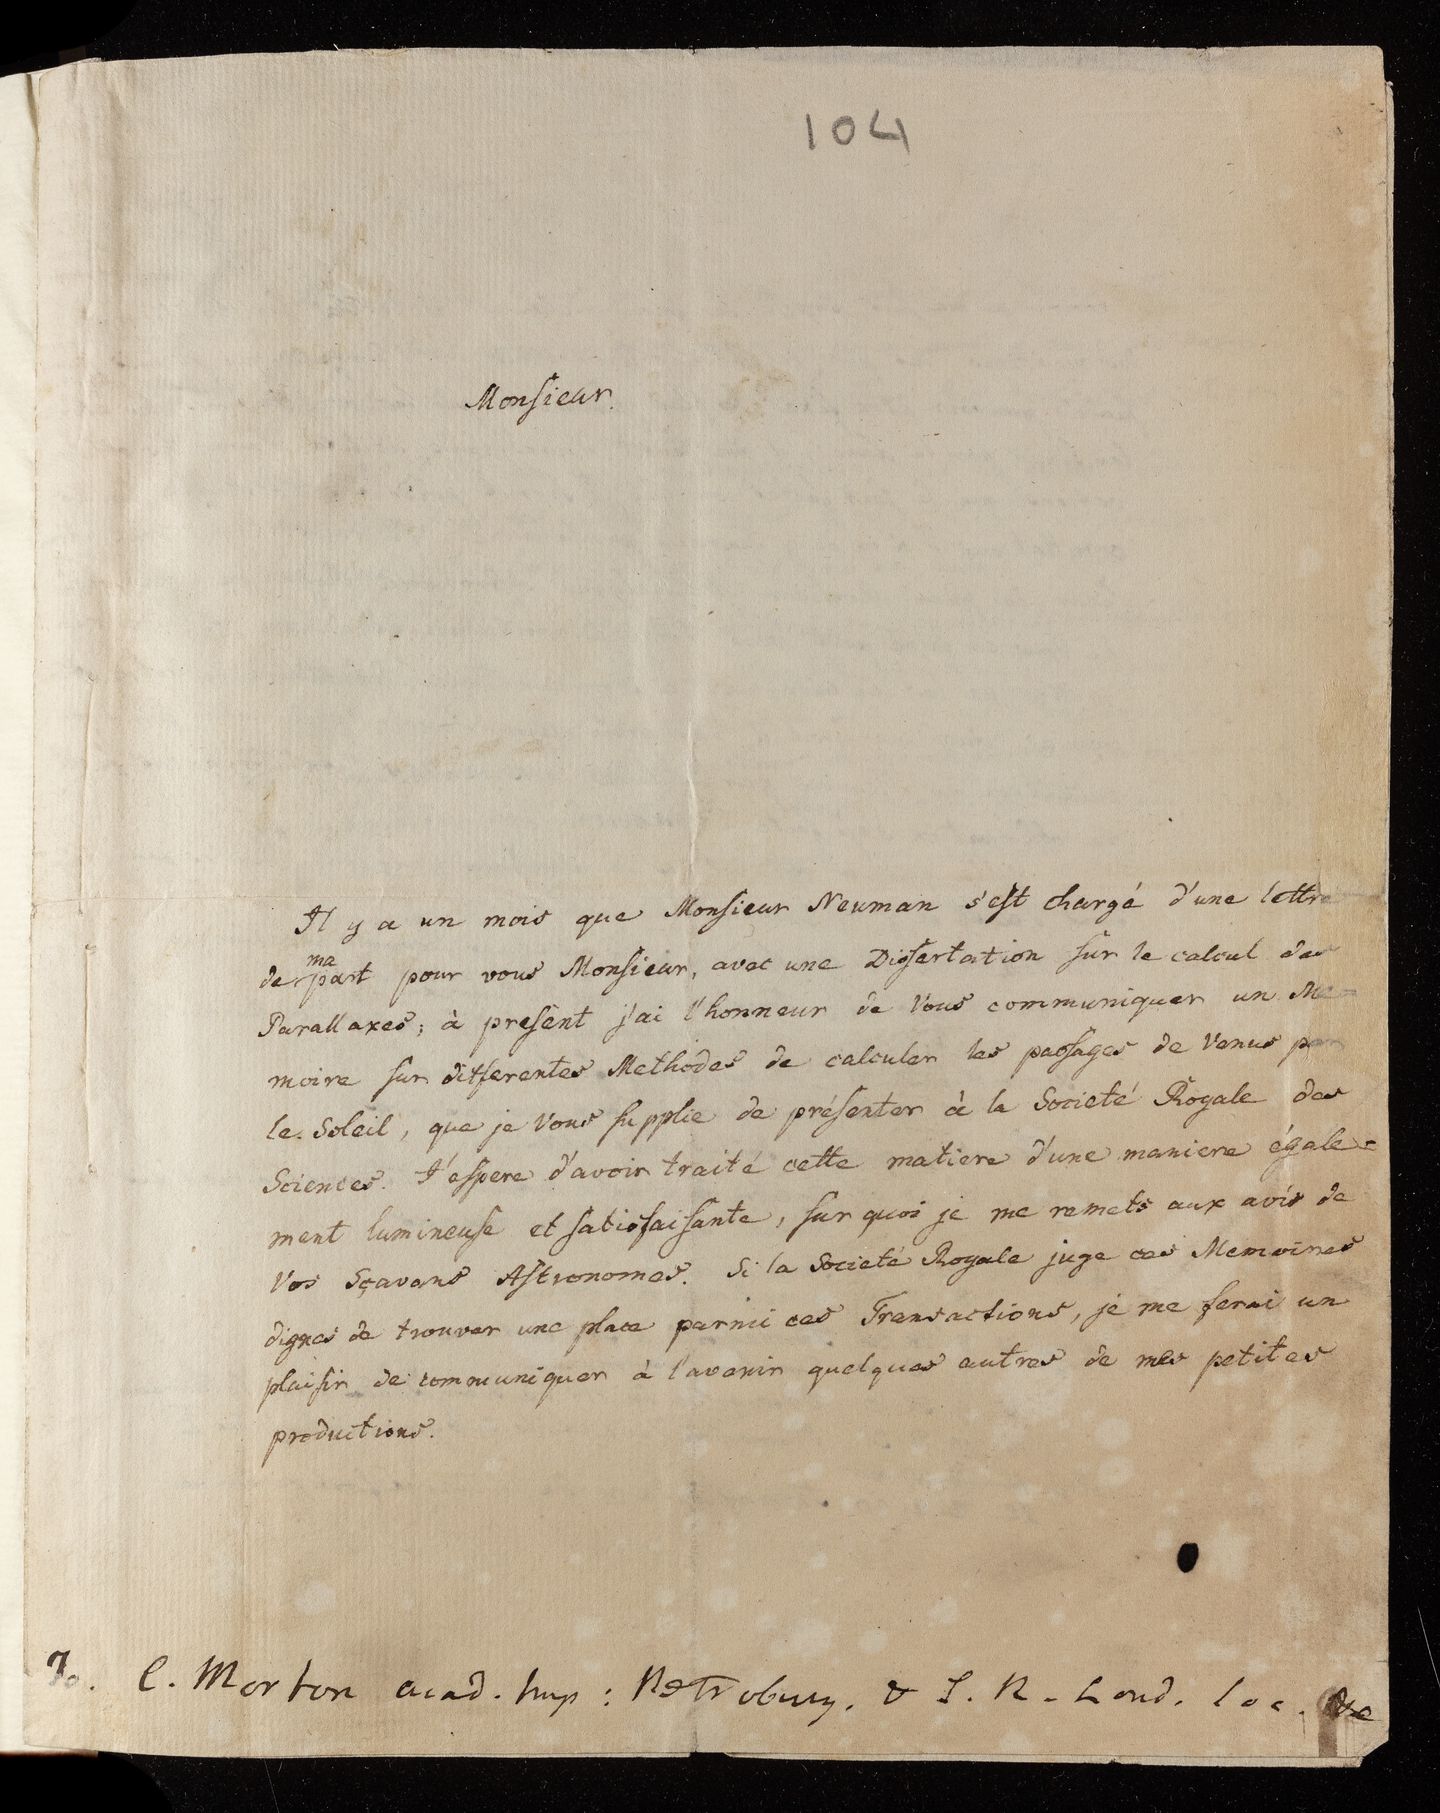 104
Monsieur.
Il y a un mois que Monsieur Neuman s'est chargé d'une lettre
de ma part pour vous Monsieur, avec une Dissertation sur le calcul des
Parallaxes; à present j'ai l'honneur de Vous communiquer un Me-
moire sur differentes Methodes de calculer les passages de Venus par
le Soleil, que je Vous supplie de présenter à la Societé Royale des
Sciences. J'espere d'avoir traité cette matiere d'une maniere égale-
ment lumineuse et satisfaisante, sur quoi je me remets aux avis de
Vos Sçavans Astronomes. Si la Societé Royale juge ces Memoires
dignes de trouver une place parmi ces Transactions, je me ferai un
plaisir de communiquer à l'avenir quelques autres de mes petites
productions.
To. C. Morton acad. Imp: Petrobury. & S. R. Lond. Soc. &c